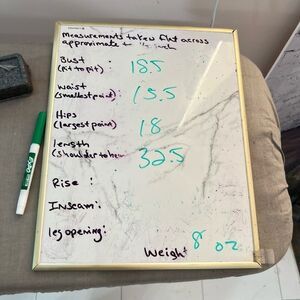 measurements taken flat across
approximate ± 1/2 inch
Bust: 18.5
(pit to pit)
waist: 15.5
(smallest point)
Hips: 18
(largest point)
length: 32.5
(shoulder to hem)
Rise:
Inseam:
leg opening:
Weight 8 oz
EXPO